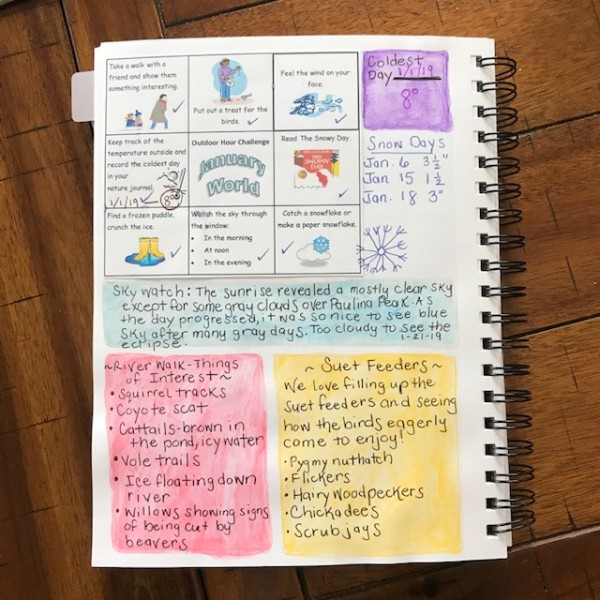 Take a walk with a
friend and show them
something interesting.
Put out a treat for the
birds.
Feel the wind on your
face.
Coldest
Day 1/1/19
8°
Keep track of the
temperature outside and
record the coldest day
in your
nature journal.
1/1/19
8°
Outdoor Hour Challenge
January
World
Read The Snowy Day.
THE
SNOWY
DAY
Snow Days
Jan. 6 3½"
Jan 15 1½
Jan. 18 3"
Find a frozen puddle,
crunch the ice.
Watch the sky through
the window:
• In the morning
• At noon
• In the evening
Catch a snowflake or
make a paper snowflake.
Sky Watch: The sunrise revealed a mostly clear sky
except for some gray clouds over Paulina Peak. As
the day progressed, it was so nice to see blue
sky after many gray days. Too cloudy to see the
eclipse.
1-21-19
~River Walk-Things
of Interest~
• Squirrel tracks
• Coyote scat
• Cattails-brown in
the pond, icy water
• Vole trails
• Ice floating down
river
• Willows showing signs
of being cut by
beavers
~ Suet Feeders ~
We love filling up the
suet feeders and seeing
how the birds eagerly
come to enjoy!
• Pygmy nuthatch
• Flickers
• Hairy Woodpeckers
• Chickadee's
• Scrub jays